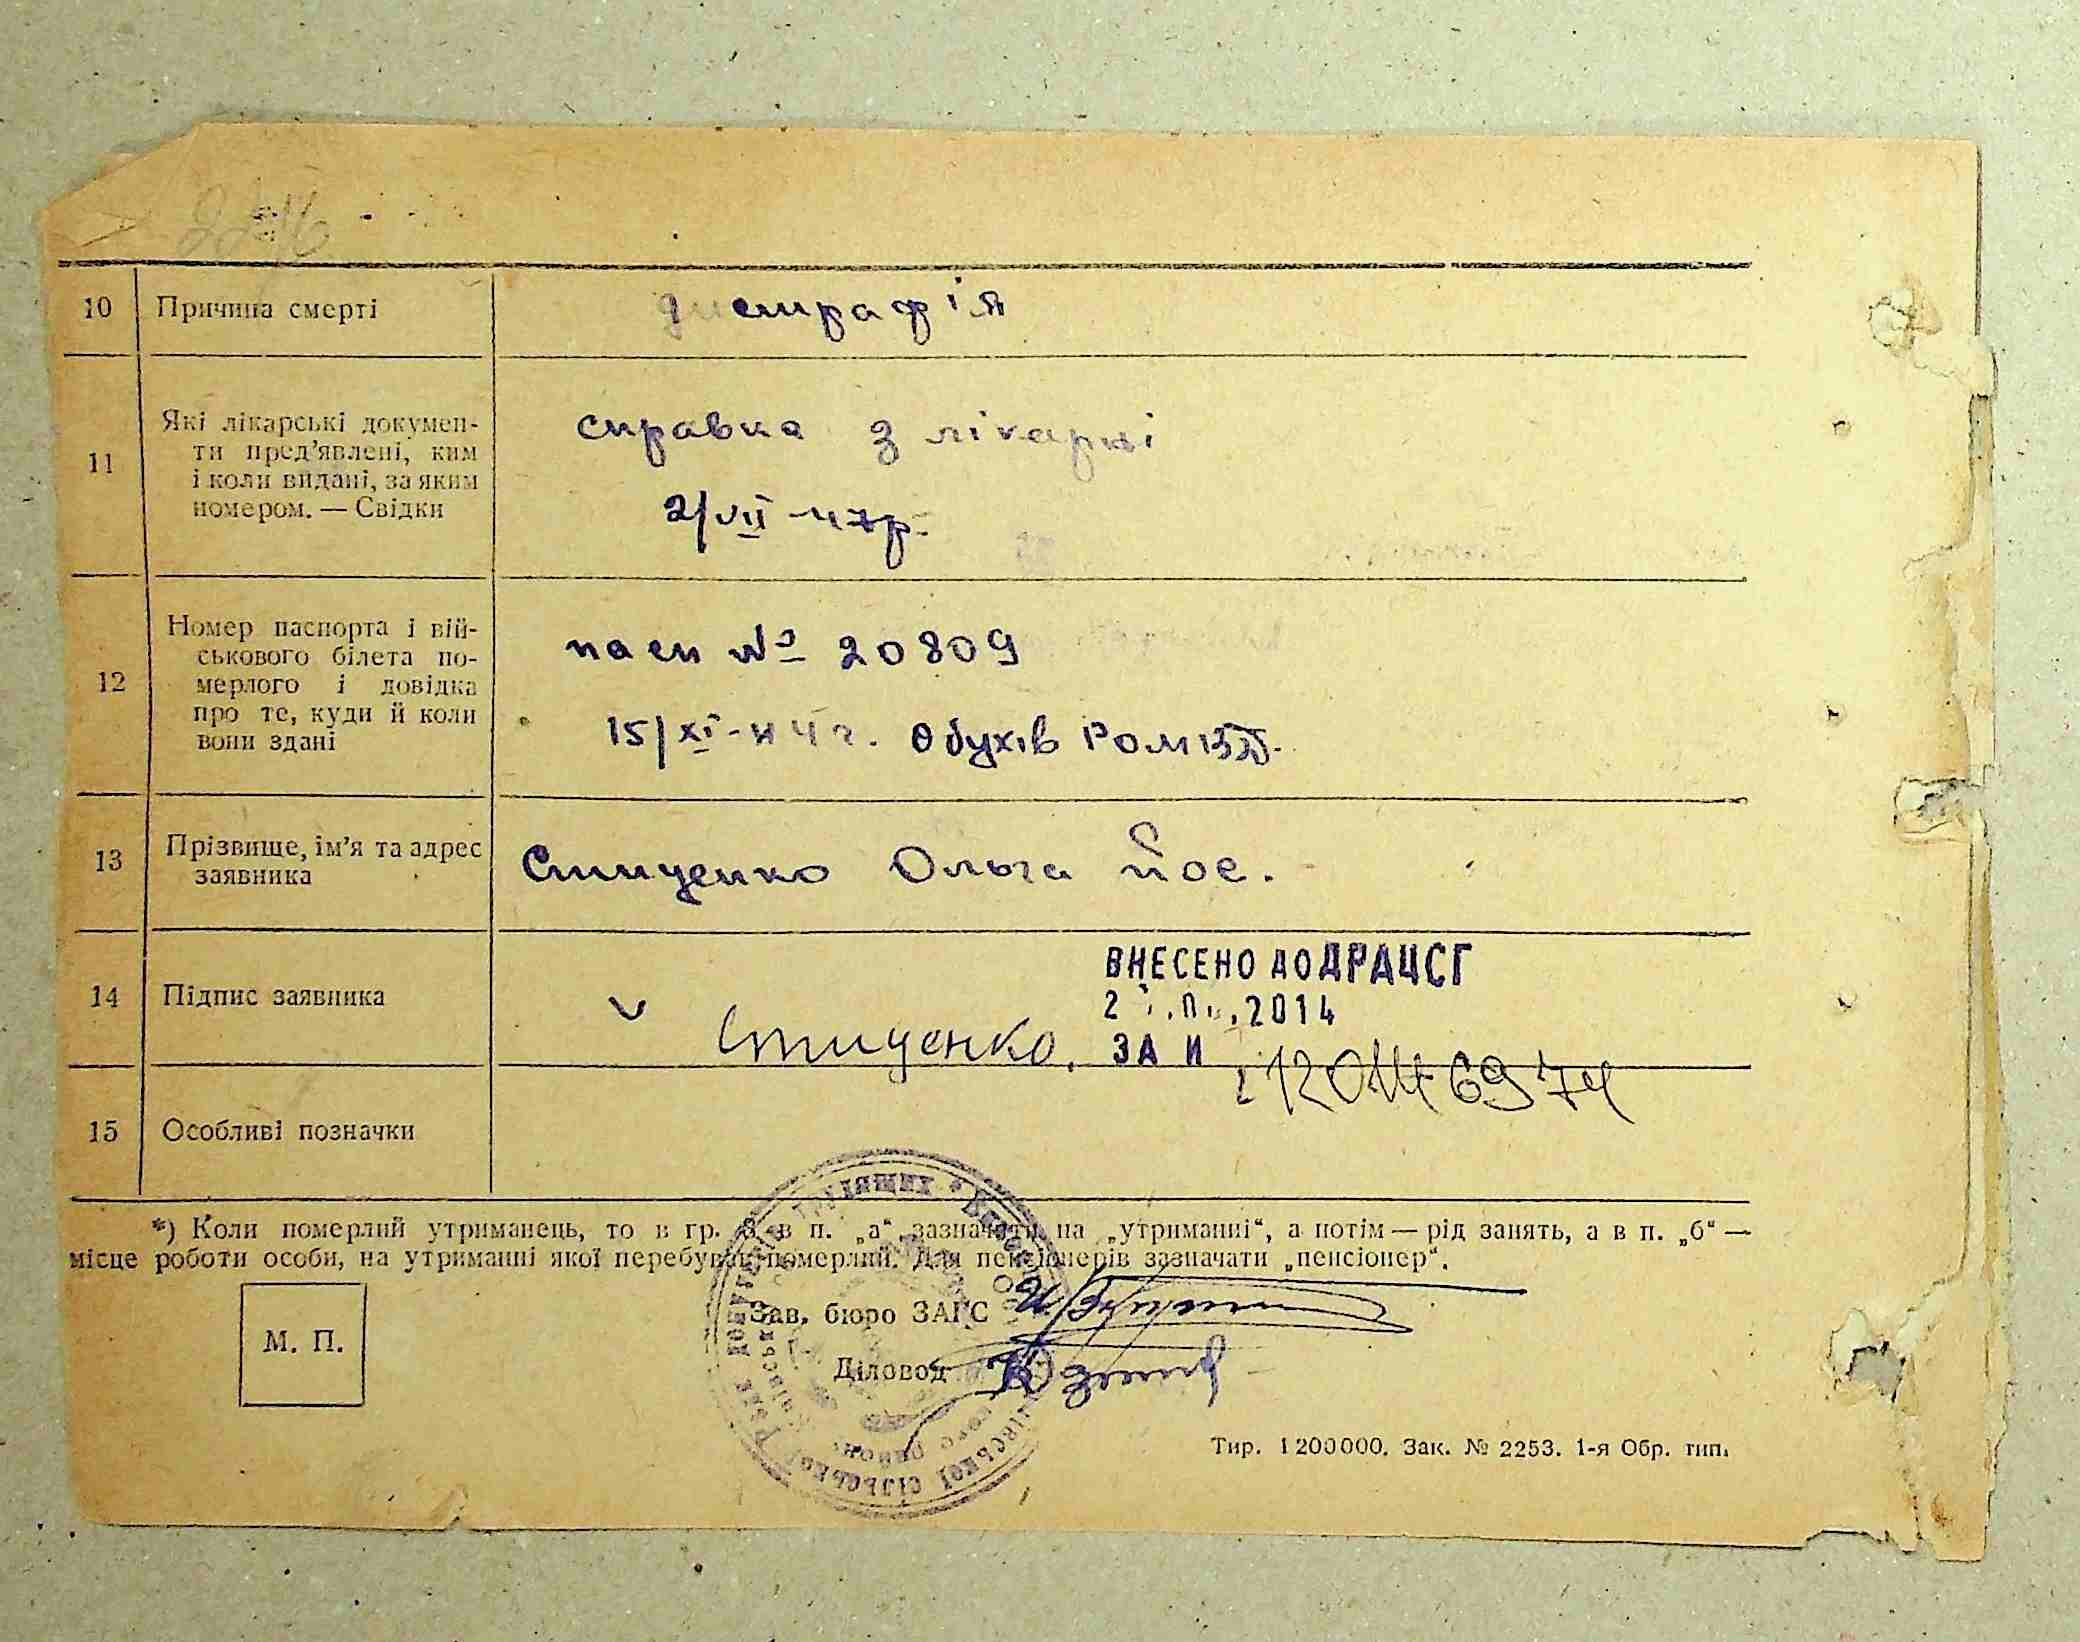 10 Причина смерті дистрафія
11 Які лікарські докумен-
ти пред'явлені, ким
і коли видані, за яким
номером. — Свідки
справка з лікарні
2/VII-47р.
12 Номер паспорта і вій-
ськового білета по-
мерлого і довідка
про те, куди й коли
вони здані
пасп № 20809
15/XI-44г. Обухів РОМВД.
13 Прізвище, ім'я та адрес
заявника
Стиценко Ольга Йос.
14 Підпис заявника
Стиценко.
ВНЕСЕНО ДО ДРАЦСГ
2014
ЗА И
15 Особливі позначки
*) Коли померлий утриманець, то в гр. 8 в п. „а“ зазначати на „утриманні“, а потім — рід занять, а в п. „б“ —
місце роботи особи, на утриманні якої перебував померлий. Для пенсіонерів зазначати „пенсіонер“.
М. П.
Зав. бюро ЗАГС
Діловод
Тир. 1200000. Зак. № 2253. 1-я Обр. тип.